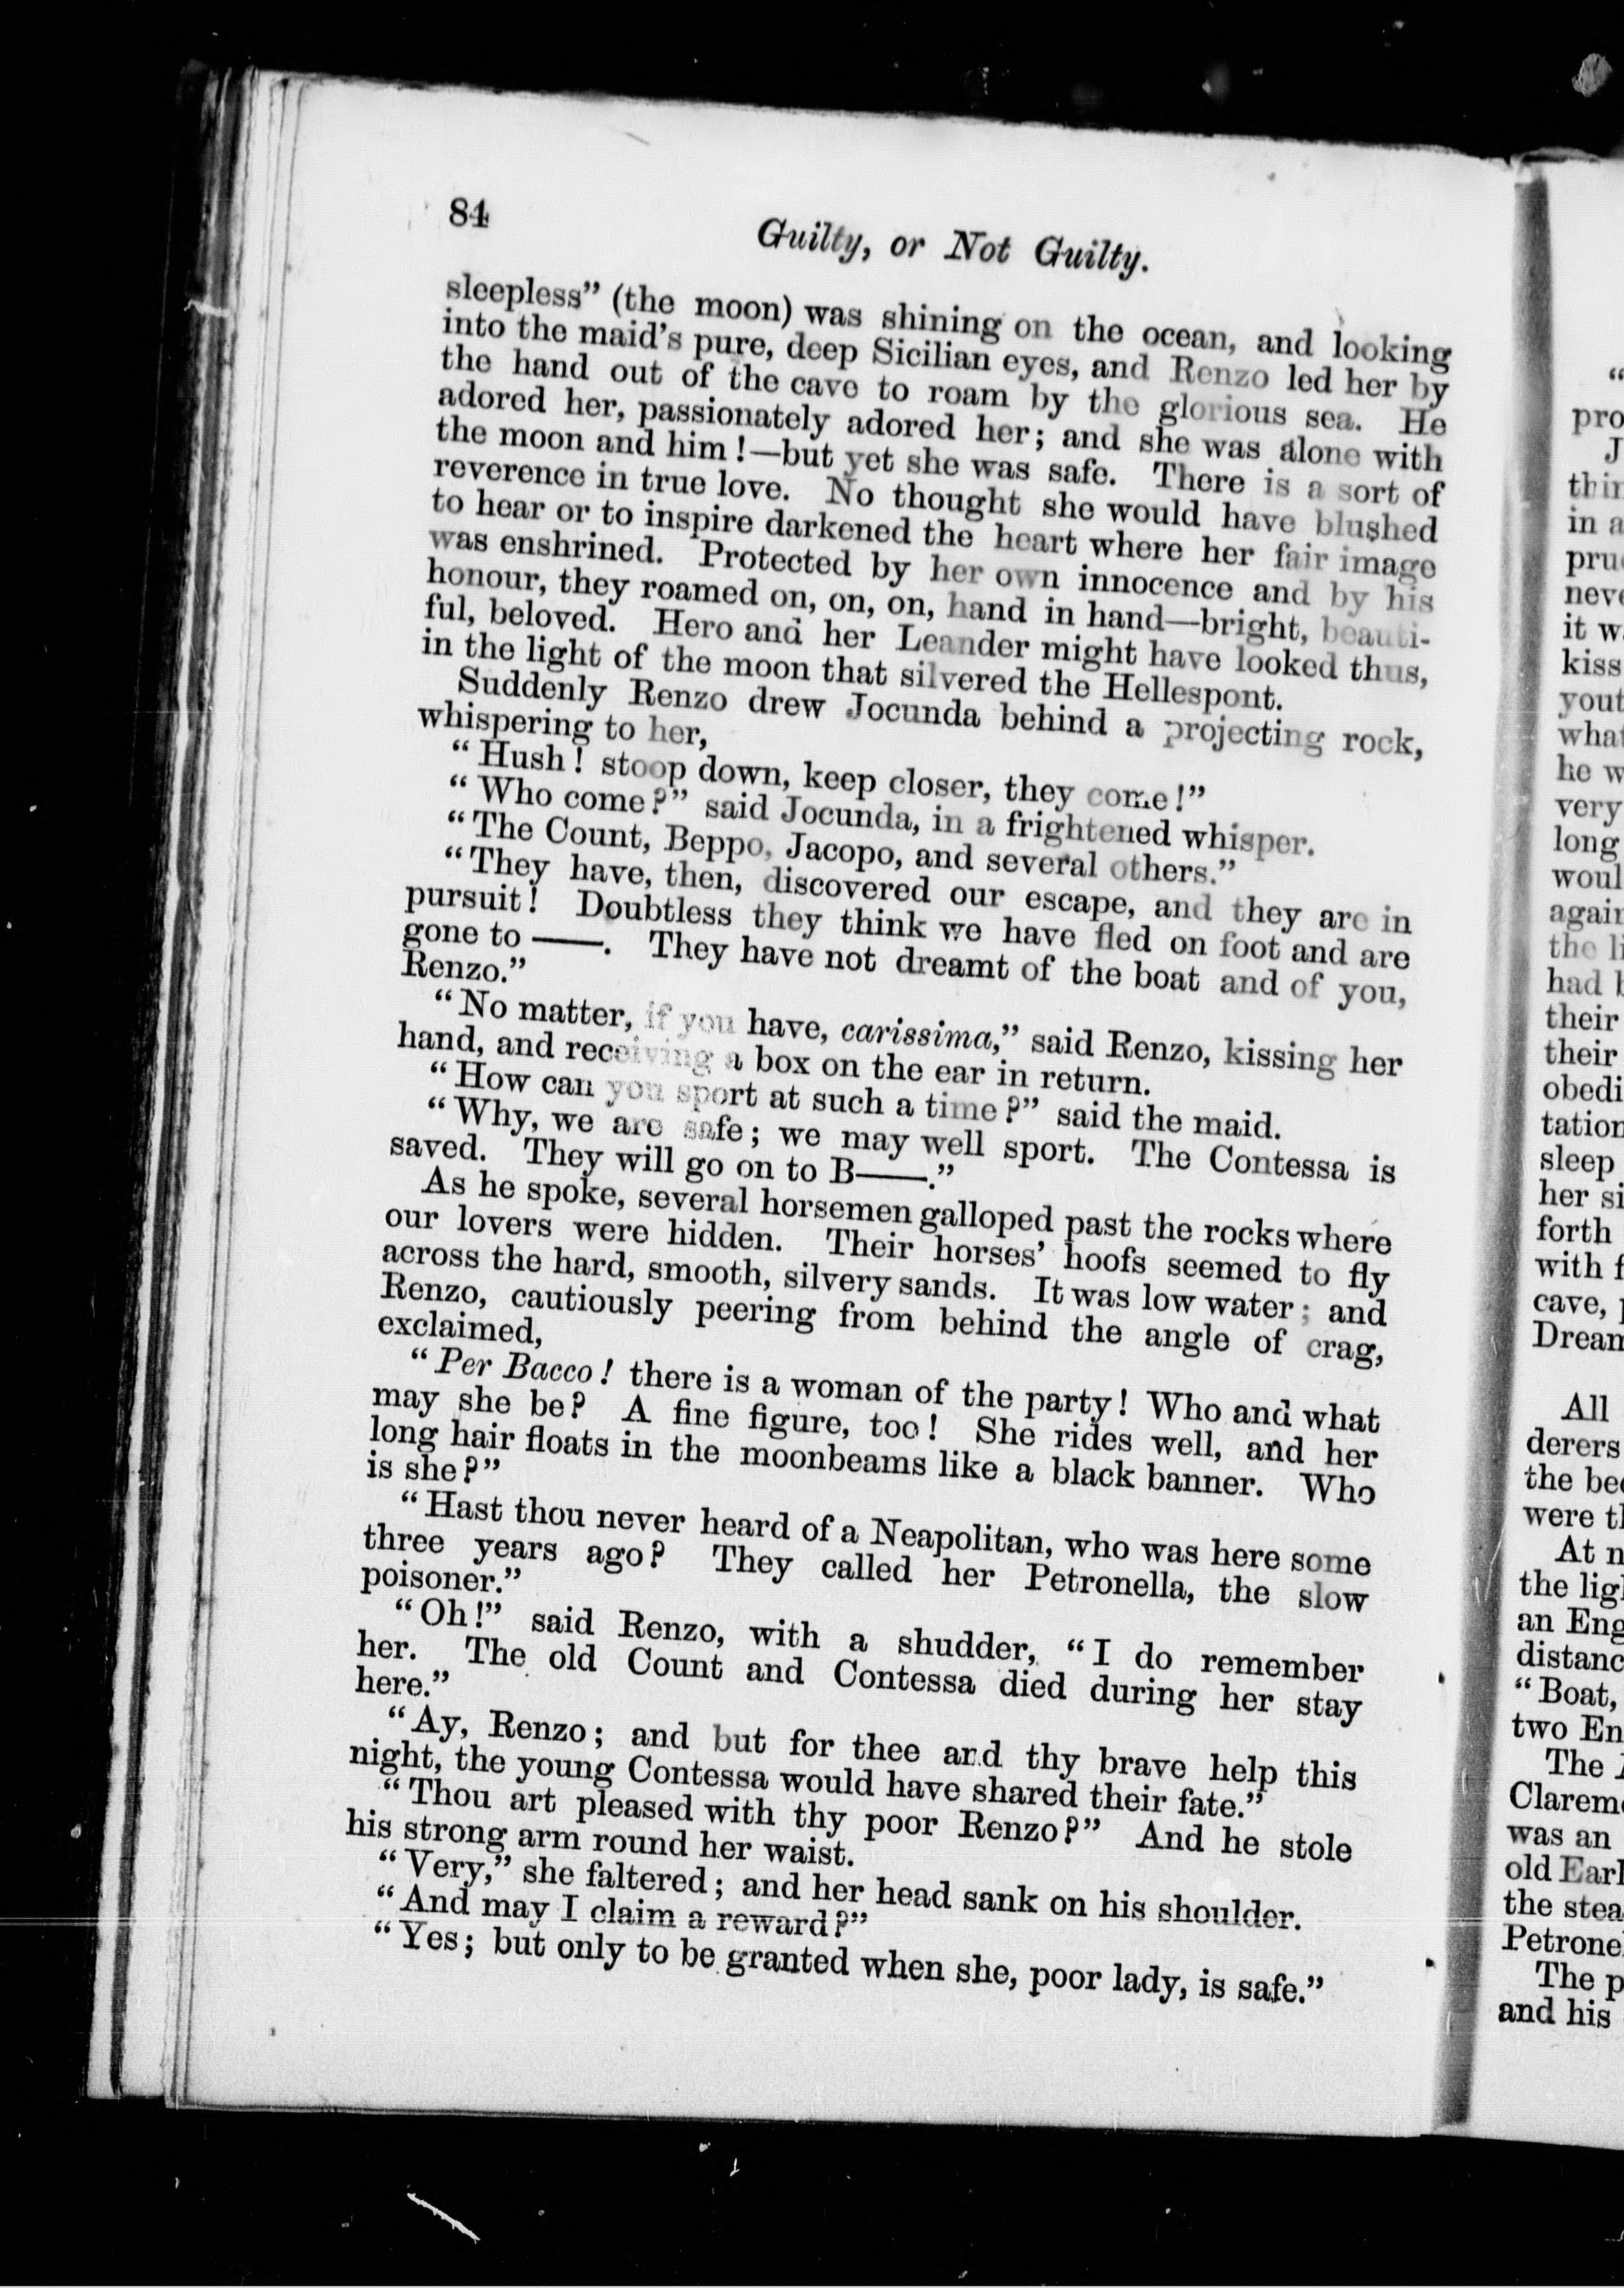 84
Guilty, or Not Guilty.
sleepless” (the moon) was shining on the ocean, and looking
into the maid’s pure, deep Sicilian eyes, and Renzo led her by
the hand out of the cave to roam by the glorious sea. He
adored her, passionately adored her; and she was alone with
the moon and him!—but yet she was safe. There is a sort of
reverence in true love. No thought she would have blushed
to hear or to inspire darkened the heart where her fair image
was enshrined. Protected by her own innocence and by his
honour, they roamed on, on, on, hand in hand—bright, beauti-
ful, beloved. Hero and her Leander might have looked thus,
in the light of the moon that silvered the Hellespont.
Suddenly Renzo drew Jocunda behind a projecting rock,
whispering to her,
“Hush! stoop down, keep closer, they come!”
“Who come?” said Jocunda, in a frightened whisper.
“The Count, Beppo, Jacopo, and several others.”
“They have, then, discovered our escape, and they are in
pursuit! Doubtless they think we have fled on foot and are
gone to ——. They have not dreamt of the boat and of you,
Renzo.”
“No matter, if you have, carissima,” said Renzo, kissing her
hand, and receiving a box on the ear in return.
“How can you sport at such a time?” said the maid.
“Why, we are safe; we may well sport. The Contessa is
saved. They will go on to B——.”
As he spoke, several horsemen galloped past the rocks where
our lovers were hidden. Their horses’ hoofs seemed to fly
across the hard, smooth, silvery sands. It was low water; and
Renzo, cautiously peering from behind the angle of crag,
exclaimed,
“Per Bacco! there is a woman of the party! Who and what
may she be? A fine figure, too! She rides well, and her
long hair floats in the moonbeams like a black banner. Who
is she?”
“Hast thou never heard of a Neapolitan, who was here some
three years ago? They called her Petronella, the slow
poisoner.”
“Oh!” said Renzo, with a shudder, “I do remember
her. The old Count and Contessa died during her stay
here.”
“Ay, Renzo; and but for thee and thy brave help this
night, the young Contessa would have shared their fate.”
“Thou art pleased with thy poor Renzo?” And he stole
his strong arm round her waist.
“Very,” she faltered; and her head sank on his shoulder.
“And may I claim a reward?”
“Yes; but only to be granted when she, poor lady, is safe.”
“
pro
J
thin
in a
pru
neve
it w
kiss
yout
what
he w
very
long
woul
again
the li
had b
their
their
obedi
tation
sleep
her si
forth
with f
cave,
Dream
All
derers
the bed
were th
At n
the lig
an Eng
distanc
“Boat,
two En
The
Claremo
was an
old Earl
the stea
Petronel
The p
and his